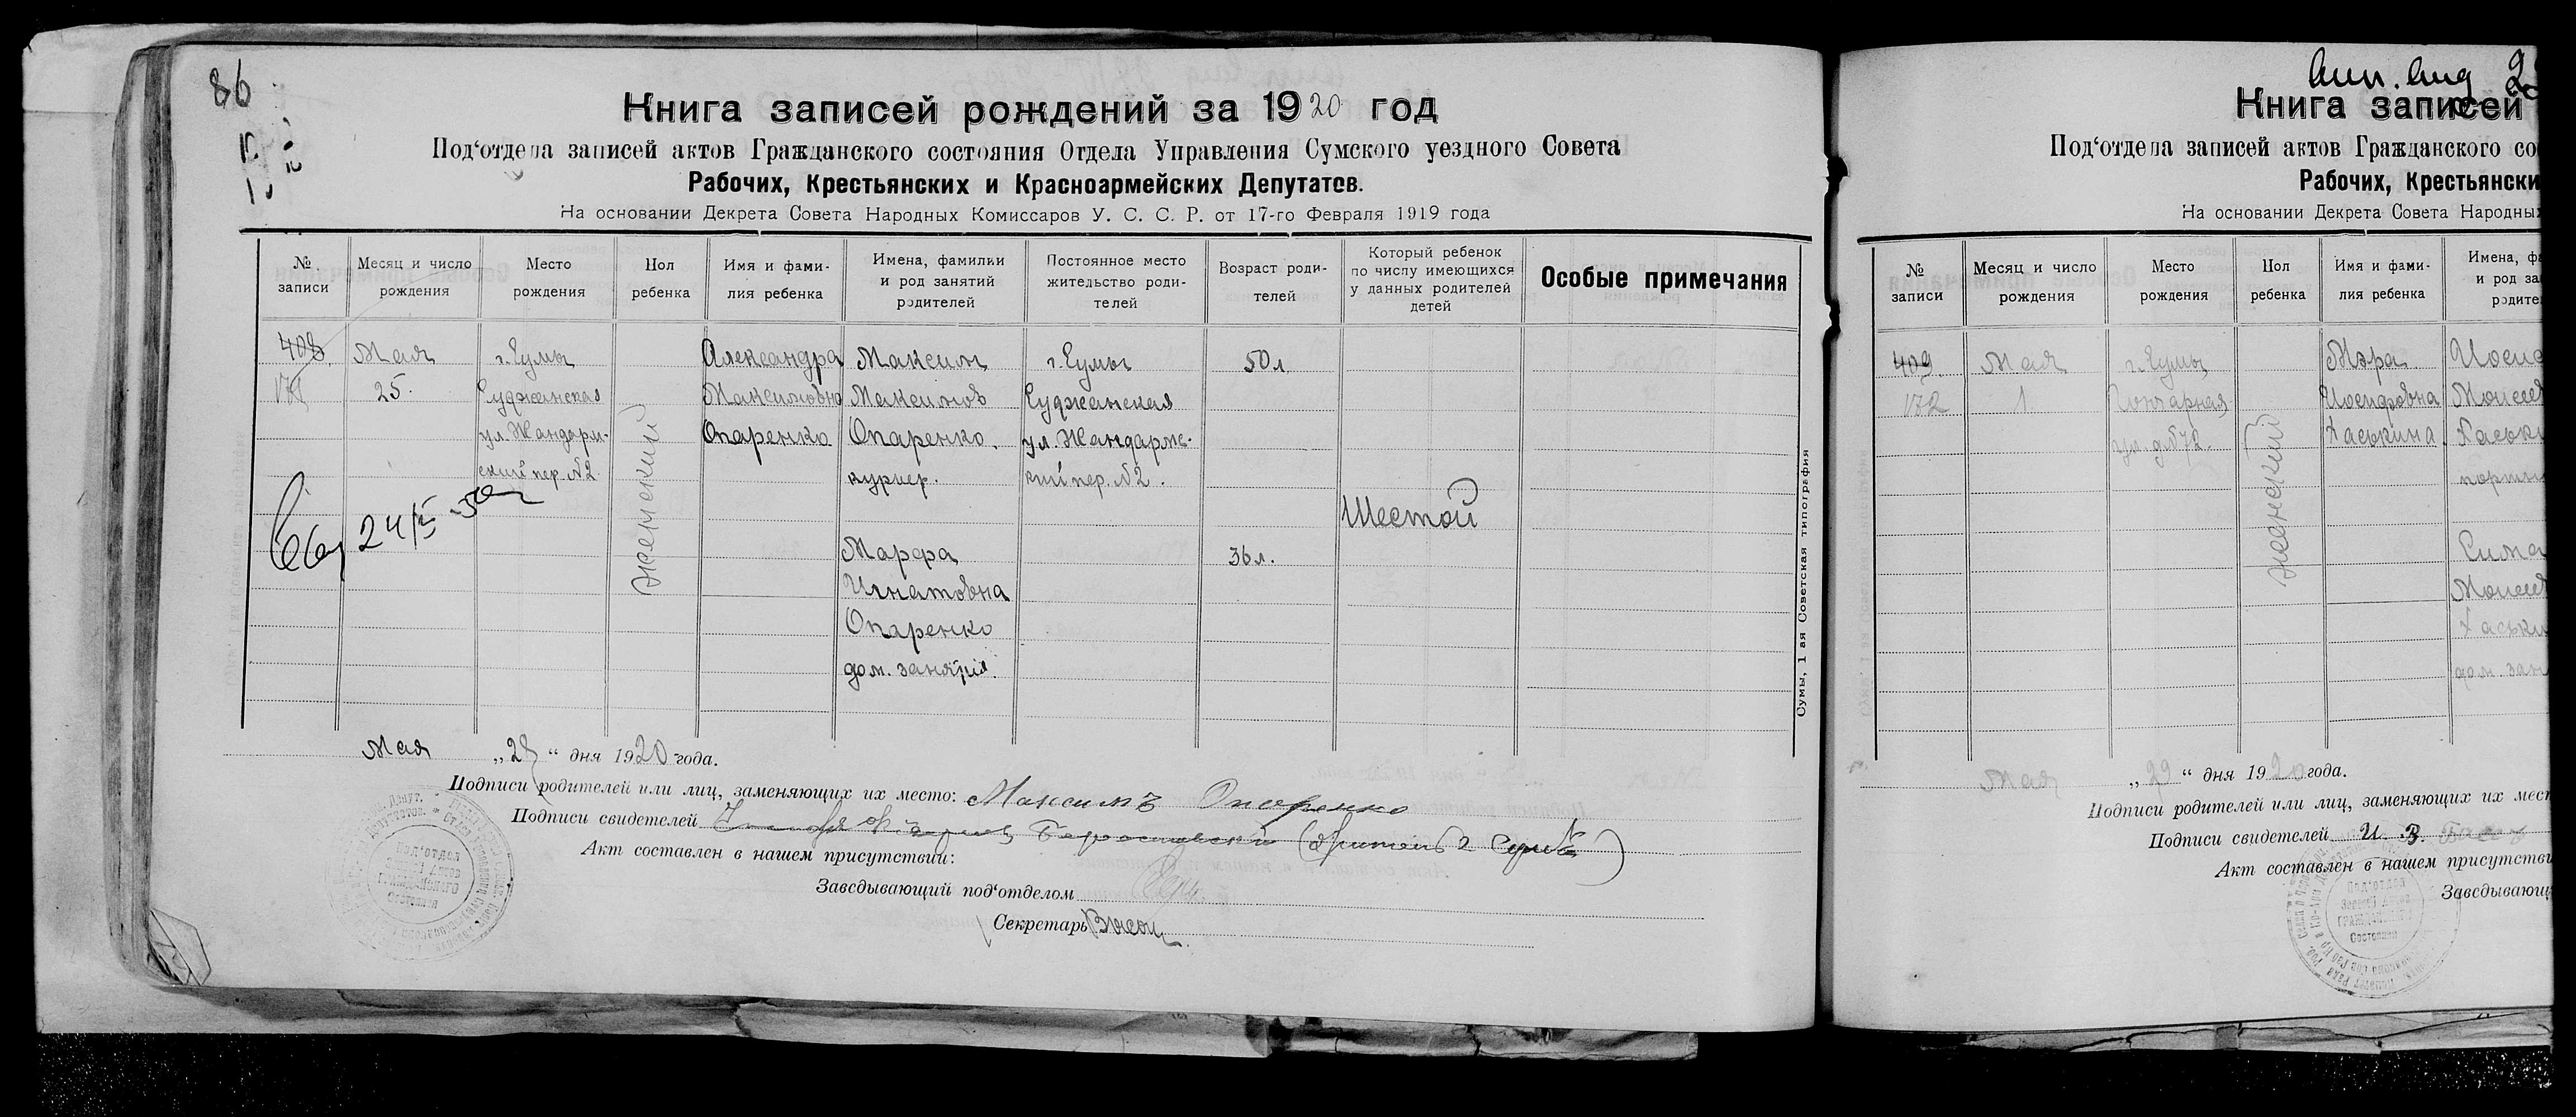 86
Книга записей рождений за 1920 год
Под'отдела записей актов Гражданского состояния Отдела Управления Сумского уездного Совета
Рабочих, Крестьянских и Красноармейских Депутатов.
На основании Декрета Совета Народных Комиссаров У. С. С. Р. от 17-го Февраля 1919 года
№ записи
Месяц и число рождения
Место рождения
Пол ребенка
Имя и фамилия ребенка
Имена, фамилии и род занятий родителей
Постоянное место жительство родителей
Возраст родителей
Который ребенок по числу имеющихся у данных родителей детей
Особые примечания
408
171
Мая
25.
г. Сумы
Суджанская
ул. Жандарм-
ский пер. №2
женский
Александра
Максимовна
Опаренко
Максим
Максимов
Опаренко.
курьер.
Марфа
Игнатовна
Опаренко
дом. занятия.
г. Сумы
Суджанская
ул. Жандармс-
кий пер. №2.
50 л.
36 л.
Шестой
24/5
Сумы, 1 ая Советская типография
Мая „28“ дня 1920 года.
Подписи родителей или лиц, заменяющих их место: Максимъ Опаренко
Подписи свидетелей
Акт составлен в нашем присутствии:
Заведывающий под'отделом
Секретарь
Под'отдел
Записей Актов
ГРАЖДАНСКОГО
Состояния
Книга записей
Под'отдела записей актов Гражданского со
Рабочих, Крестьянски
На основании Декрета Совета Народны
№ записи
Месяц и число рождения
Место рождения
Пол ребенка
Имя и фамилия ребенка
Имена, фа
и род за
родите
409
172
Мая
1
г. Сумы
Гончарная
ул. д. №72.
женский
Мэра
Иосифовна
Хаськина
Иоси
Моисе
Хаськ
портн
Сима
Моисе
Хаськи
дом. зан
Мая „29“ дня 1920 года.
Подписи родителей или лиц, заменяющих их мест
Подписи свидетелей И. З.
Акт составлен в нашем присутстви
Заведывающ
Под'отдел
Записей Актов
ГРАЖДАНСКОГО
Состояния